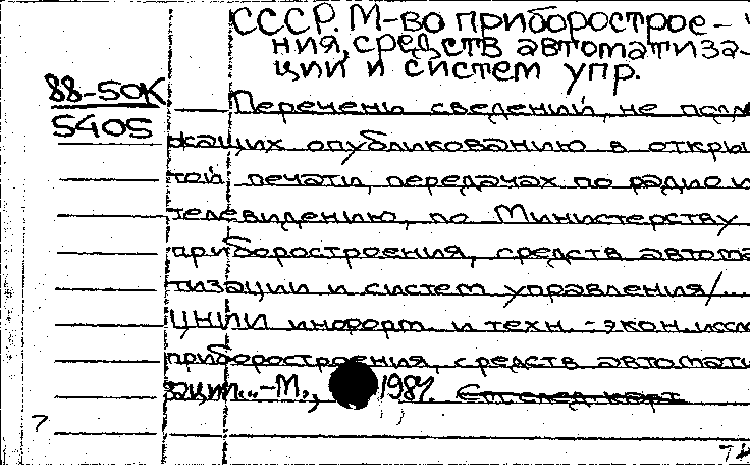 СССР. М-во приборострое-
ния, средств автоматиза-
ции и систем упр.
88-50К
5405
Перечень сведений, не подле
жащих опубликованию в откры
той печати, передачах по радио и
телевидению, по Министерству
приборостроения, средств автома
тизации и систем управления/...
ЦНИИ информ. и техн.-экон. иссл
приборостроения, средств автомати
зации...-М., 1987. См. след. карт.
7